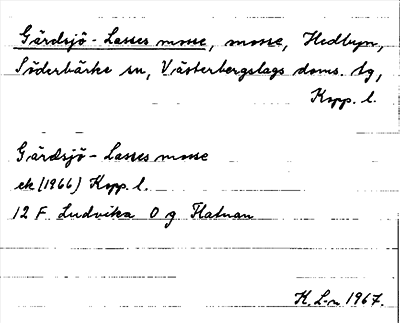 Gärdsjö-Lasses mosse, mosse, Hedbyn,
Söderbärke sn, Västerbergslags doms. tg,
Kopp. l.
Gärdsjö-Lasses mosse
ek (1966) Kopp. l.
12 F Ludvika O g Flatnan
K. L-n 1967.